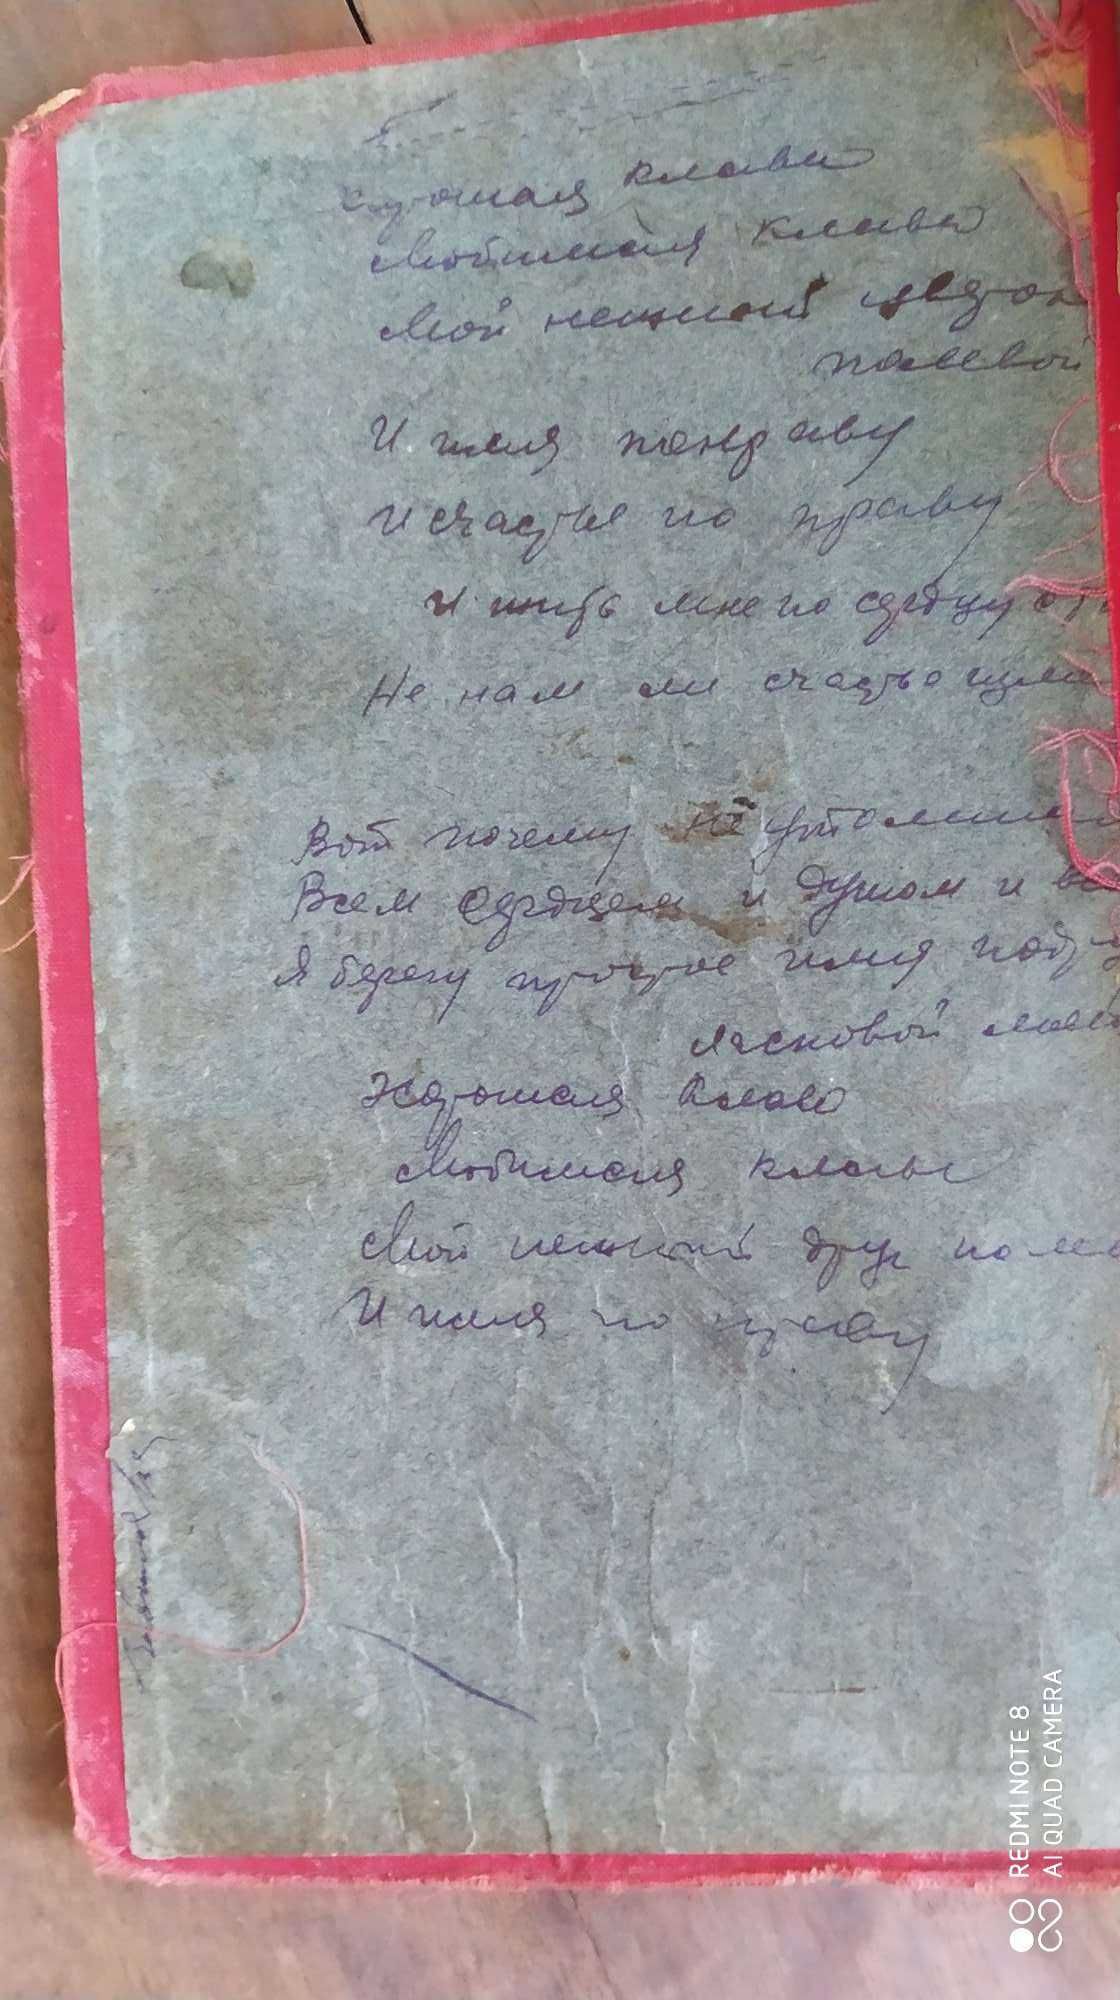 Хутошая Клава
Любимая Клава
Мой нежный цветок
полевой
И имя понраву
И счастье по праву
И жить мне по сердцу
Не нам ли счастье
Вот почему не
Всем сердцем и душой и
Я берегу простое имя
ласковой
Хутошая Клава
Любимая Клава
Мой нежный друг
И имя по праву
REDMI NOTE 8
AI QUAD CAMERA